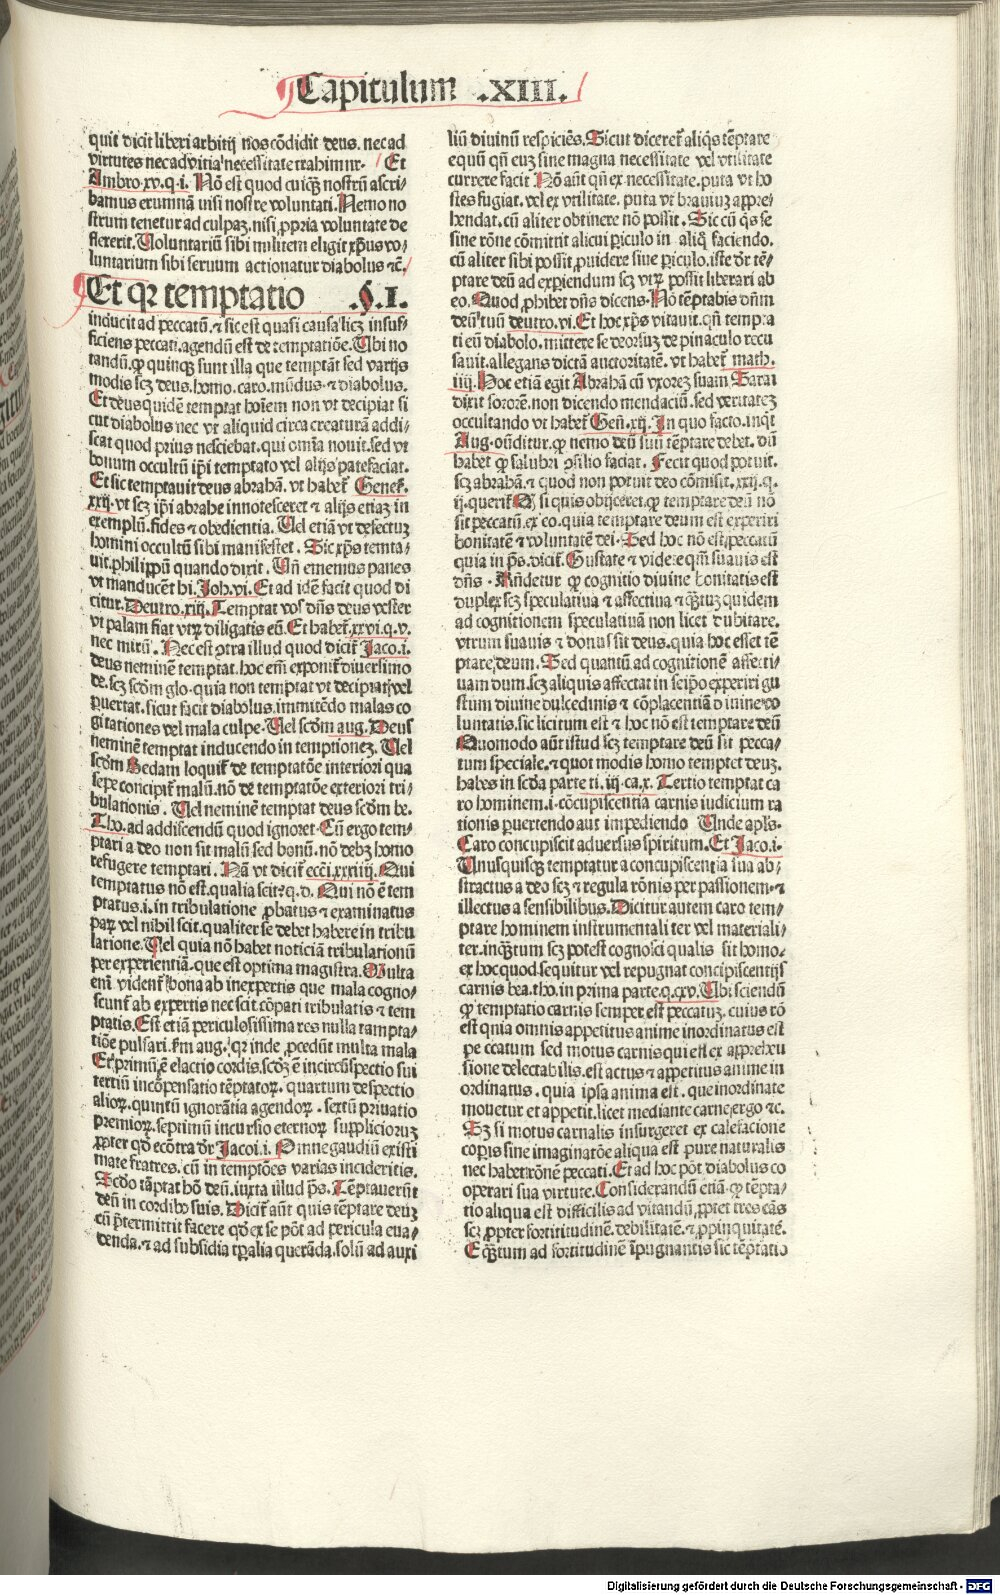 Capitulum .XIII.
quit dicit liberi arbitrij nos cōdidit deus. nec ad
virtutes nec ad vitia necessitate trahimur. Et
Ambro. xv. q. i. Nō est quod cuiq̄ȝ nostrū ascri/
bamus erumnā nisi nostre voluntati. Nemo no
strum tenetur ad culpaȝ. nisi ꝓpria voluntate de
flexerit. Voluntariū sibi militem eligit xp̄us vo/
luntarium sibi seruum actionatur diabolus ⁊c̄.
Et qꝛ temptatio .§.I.
inducit ad peccatū. ⁊ sic est quasi causa licȝ insuf/
ficiens peccati. agendū est de temptatiōe. Ubi no
tandū. ꝙ quinqȝ sunt illa que temptāt sed varijs
modis scȝ deus. homo. caro. mūdus. ⁊ diabolus.
Et deus quidē temptat hoīem non vt decipiat si
cut diabolus nec vt aliquid circa creaturā addi/
scat quod prius nesciebat. qui omīa nouit. sed vt
bonum occultū ip̄i temptato vel alijs patefaciat.
Et sic temptauit deus abrahā. vt habet̄ Genes̄.
xxij. vt scȝ ip̄i abrahe innotesceret ⁊ alijs etiaȝ in
exemplū. fides ⁊ obedientia. Uel etiā vt defectuȝ
homini occultū sibi manifestet. Sic xp̄s temta/
uit. philippū quando dixit. Un̄ ememus panes
vt manducēt hi. Joh. vi. Et ad idē facit quod di
citur. Deutro. xiij. Temptat vos dn̄s deus vester
vt palam fiat vtꝝ diligatis eū. Et habet̄. xxvi. q. v.
nec mirū. Nec est ꝯtra illud quod dicit̄ Jaco. i.
deus neminē temptat. hoc em̄ exponit̄ diuersimo
de. scȝ scd̄m glo. quia non temptat vt decipiat vel
ꝑuertat. sicut facit diabolus. immitēdo malas co
gitationes vel mala culpe. Uel scd̄m aug. Deus
neminē temptat inducendo in temptioneȝ. Uel
scd̄m Bedam loquit̄ de temptatōe interiori qua
sepe concipit̄ malū. nō de temptatōe exteriori tri/
bulationis. Uel neminē temptat deus scd̄m be.
Tho. ad addiscendū quod ignoret. Cū ergo tem/
ptari a deo non sit malū sed bonū. nō debȝ homo
refugere temptari. Nā vt dicit̄ ecci. xxxiiij. Qui
temptatus nō est. qualia scit? q. d. Qui nō ē tem
ptatus. i. in tribulatione ꝓbatus ⁊ examinatus
paꝝ vel nihil scit. qualiter se debet habere in tribu
latione. Uel quia nō habet noticiā tribulationū
per experientiā. que est optima magistra. Multa
eni vident̄ bona ab inexpertis que mala cogno/
scunt̄ ab expertis nec scit cōpati tribulatis ⁊ tem
ptatis. Est etiā periculosissima res nulla tampta/
tiōe pulsari. scd̄m aug. qꝛ inde ꝓcedūt multa mala
Et primū ē elactio cordis. scd̄ȝ ē incircūspectio sui
tertiū incōpensatio tēptatoꝝ. quartum despectio
alioꝝ. quintū ignorātia agendoꝝ. sextū priuatio
premioꝝ. septimū incursio eternoꝝ suppliciorūȝ
ꝓpter qd̄ ecōtra dr̄ Jacoi. i. Omne gaudiū existi
mate fratres. cū in temptōes varias incideritis.
Scd̄o tāptat hō deū. iuxta illud p̄s. Tēptauerūt
deū in cordibꝰ suis. Dicit̄ aūt quis tēptare deuȝ
cū p̄termittit facere qd̄ ex se pōt ad pericula eua/
denda. ⁊ ad subsidia tꝑalia querēda. solū ad auxi
liū diuinū respiciēs. Sicut diceret̄ aliq̄s tēptare
equū qn̄ euȝ sine magna necessitate vel vtilitate
currere facit Nō aūt qn̄ ex necessitate. puta vt ho
stes fugiat. vel ex vtilitate. puta vt brauiuȝ appre/
hendat. cū aliter obtinere nō possit. Sic cū q̄s se
sine rōne cōmittit alicui ꝑiculo in aliq̄ faciendo.
cū aliter sibi possit ꝓuidere sine ꝑiculo. iste dr̄ tē/
ptare deū ad exꝑiendum scȝ vtꝝ possit liberari ab
eo. Quod ꝓhibet dn̄s dicens. Nō tēptabis dn̄m
deū tuū deutro. vi. Et hoc xp̄s vitauit. qn̄ tempta
ti eū diabolo. mittere se deorsuȝ de pinaculo recu
sauit. allegans dictā auctoritatē. vt habet̄ math.
iiij. Hoc etiā egit Abrahā cū vxoreȝ suam Sarai
dixit sororē. non dicendo mendaciū. sed veritateȝ
occultando vt habet̄ Gen̄. xij. In quo facto. inq̄t
Aug. on̄ditur. ꝙ nemo deū suū tēptare debet. dū
habet ꝙ salubri ꝯsilio faciat. Fecit quod potuit.
scȝ abrahā. ⁊ quod non potuit deo cōmisit. xxij. q.
ij. querit̄. Q si quis obijceret. ꝙ temptare deū nō
sit peccatū. ex eo. quia temptare deum est experiri
bonitatē ⁊ voluntatē dei. Sed hoc nō est peccatū
quia in ps. dicit̄. Gustate ⁊ videte qm̄ suauis est
dn̄s. Rn̄detur ꝙ cognitio diuine bonitatis est
duplex scȝ speculatiua ⁊ affectiua ⁊ q̄tuȝ quidem
ad cognitionem speculatiuā non licet dubitare.
vtrum suauis ⁊ bonus sit deus. quia hoc esset tē
ptare deum. Sed quantū ad cognitionē affecti/
uam dum. scȝ aliquis affectat in seip̄o experiri gu
stum diuine dulcedinis ⁊ cōplacentiā diuine vo
luntatis. sic licitum est ⁊ hoc nō est temptare deū
Quomodo aūt istud scȝ temptare deū sit pecca/
tum speciale. ⁊ quot modis homo temptet deuȝ.
habes in scd̄a parte ti. iij. ca. x. Tertio temptat ca
ro hominem. i. cōcupiscentia carnis iudicium ra
tionis ꝑuertendo aut impediendo Unde apl̄s.
Caro concupiscit aduersus spiritum. Et Jaco. i.
Unusquisqȝ temptatur a concupiscentia sua ab/
stractus a deo scȝ ⁊ regula rōnis per passionem. ⁊
illectus a sensibilibus. Dicitur autem caro tem/
ptare hominem instrumentali ter vel materiali/
ter. inq̄tum scȝ potest cognosci qualis sit homo.
ex hoc quod sequitur vel repugnat concipiscentijs
carnis bea. tho. in prima parte. q. cxv. Ubi sciendū
ꝙ temptatio carnis semper est peccatuȝ. cuius rō
est quia omnis appetitus anime inordinatus est
pe ccatum sed motus carnis qui est ex apprehen/
sione delectabilis. est actus ⁊ appetitus anime in
ordinatus. quia ipsa anima est. que inordinate
mouetur et appetit. licet mediante carne. ergo ⁊c.
Sȝ si motus carnalis insurgeret ex calefacione
corꝑis sine imaginatōe aliqua est pure naturalis
nec habet rōnē peccati. Et ad hoc pōt diabolus co
operari sua virtute. Considerandū etiā. ꝙ tēpta/
tio aliqua est difficilis ad vitandū. ꝓptet tres cās
scȝ ꝓpter fortitudinē. debilitatē. ⁊ ꝓpinquitatē.
Et q̄tum ad fortitudinē īpugnantis sic tēptatio
Digitalisierung gefördert durch die Deutsche Forschungsgemeinschaft - DFG